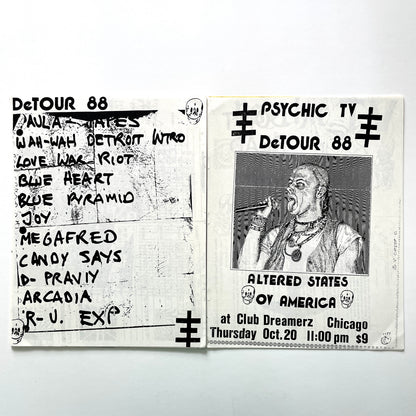 DeTOUR 88
WAH-WAH DETROIT INTRO
LOVE WAR RIOT
BLUE HEART
BLUE PYRAMID
JOY
MEGAFRED
CANDY SAYS
D- PRAVIY
ARCADIA
R- U. EXP
PSYCHIC TV
DeTOUR 88
ALTERED STATES
OV AMERICA
at Club Dreamerz Chicago
Thursday Oct. 20 11:00 pm $9